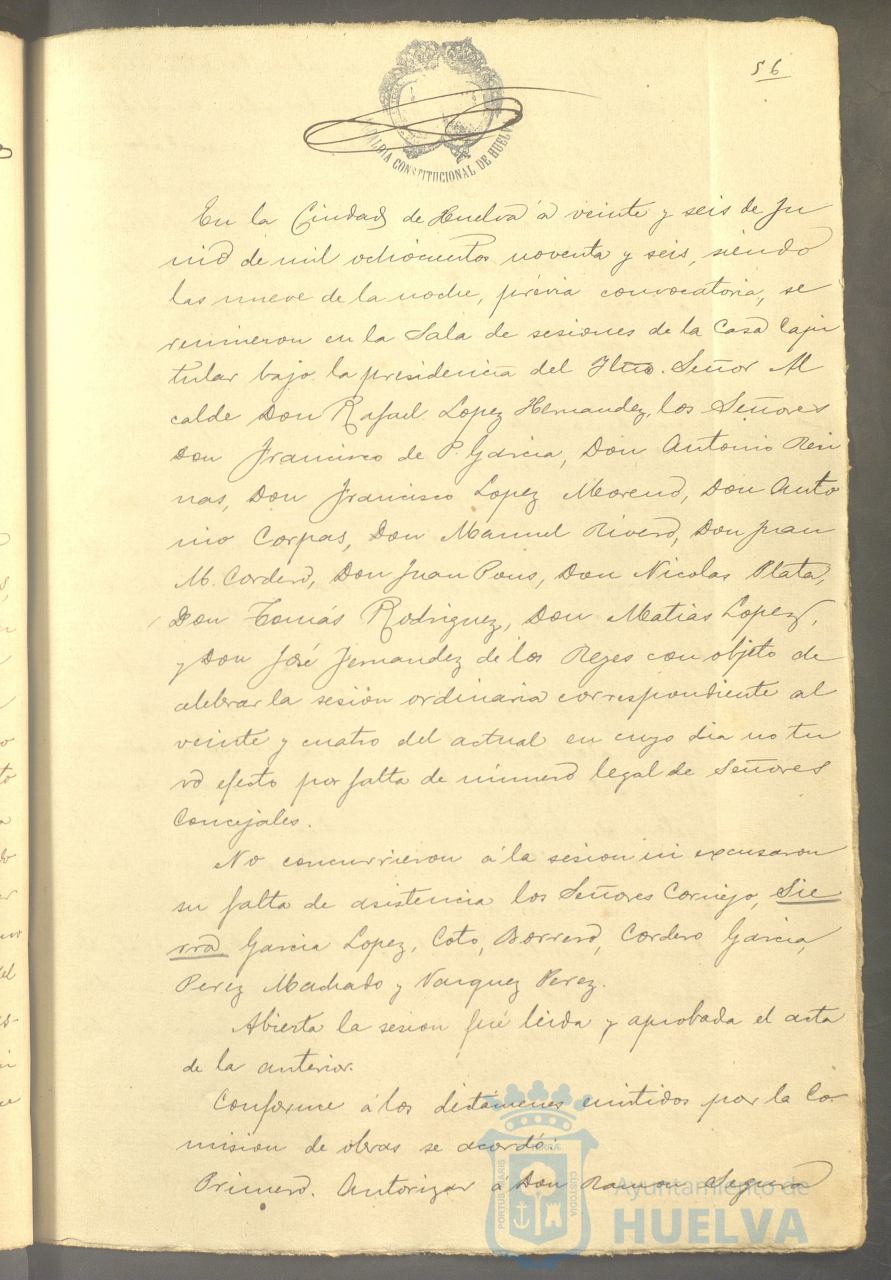 56
ALCALDIA CONSTITUCIONAL DE HUELVA
En la Ciudad de Huelva á veinte y seis de Ju
nio de mil ochocientos noventa y seis, siendo
las nueve de la noche, prévia convocatoria, se
reunieron en la Sala de sesiones de la Casa Capi
tular bajo la presidencia del Iltmo. Señor Al
calde Don Rafael Lopez Hernandez, los Señores
Don Francisco de P. Garcia, Don Antonio Rei
nas, Don Francisco Lopez Moreno, Don Anto
nio Corpas, Don Manuel Rivero, Don Juan
M. Cordero, Don Juan Pons, Don Nicolas Plata,
Don Tomás Rodriguez, Don Matias Lopez,
y Don José Fernandez de los Reyes con objeto de
celebrar la sesión ordinaria correspondiente al
veinte y cuatro del actual en cuyo dia no tu
vo efecto por falta de número legal de Señores
Concejales.
No concurrieron á la sesion ni excusaron
su falta de asistencia los Señores Cornejo, Sie
rra Garcia Lopez, Coto, Borrero, Cordero Garcia,
Perez Machado y Vazquez Perez.
Abierta la sesion fué leida y aprobada el acta
de la anterior.
Conforme á los dictámenes emitidos por la Co-
mision de obras se acordó:
Primero. Autorizar á Don Ramon Segura
PORTUS MARIS
CUSTODIA
Ayuntamiento de
HUELVA